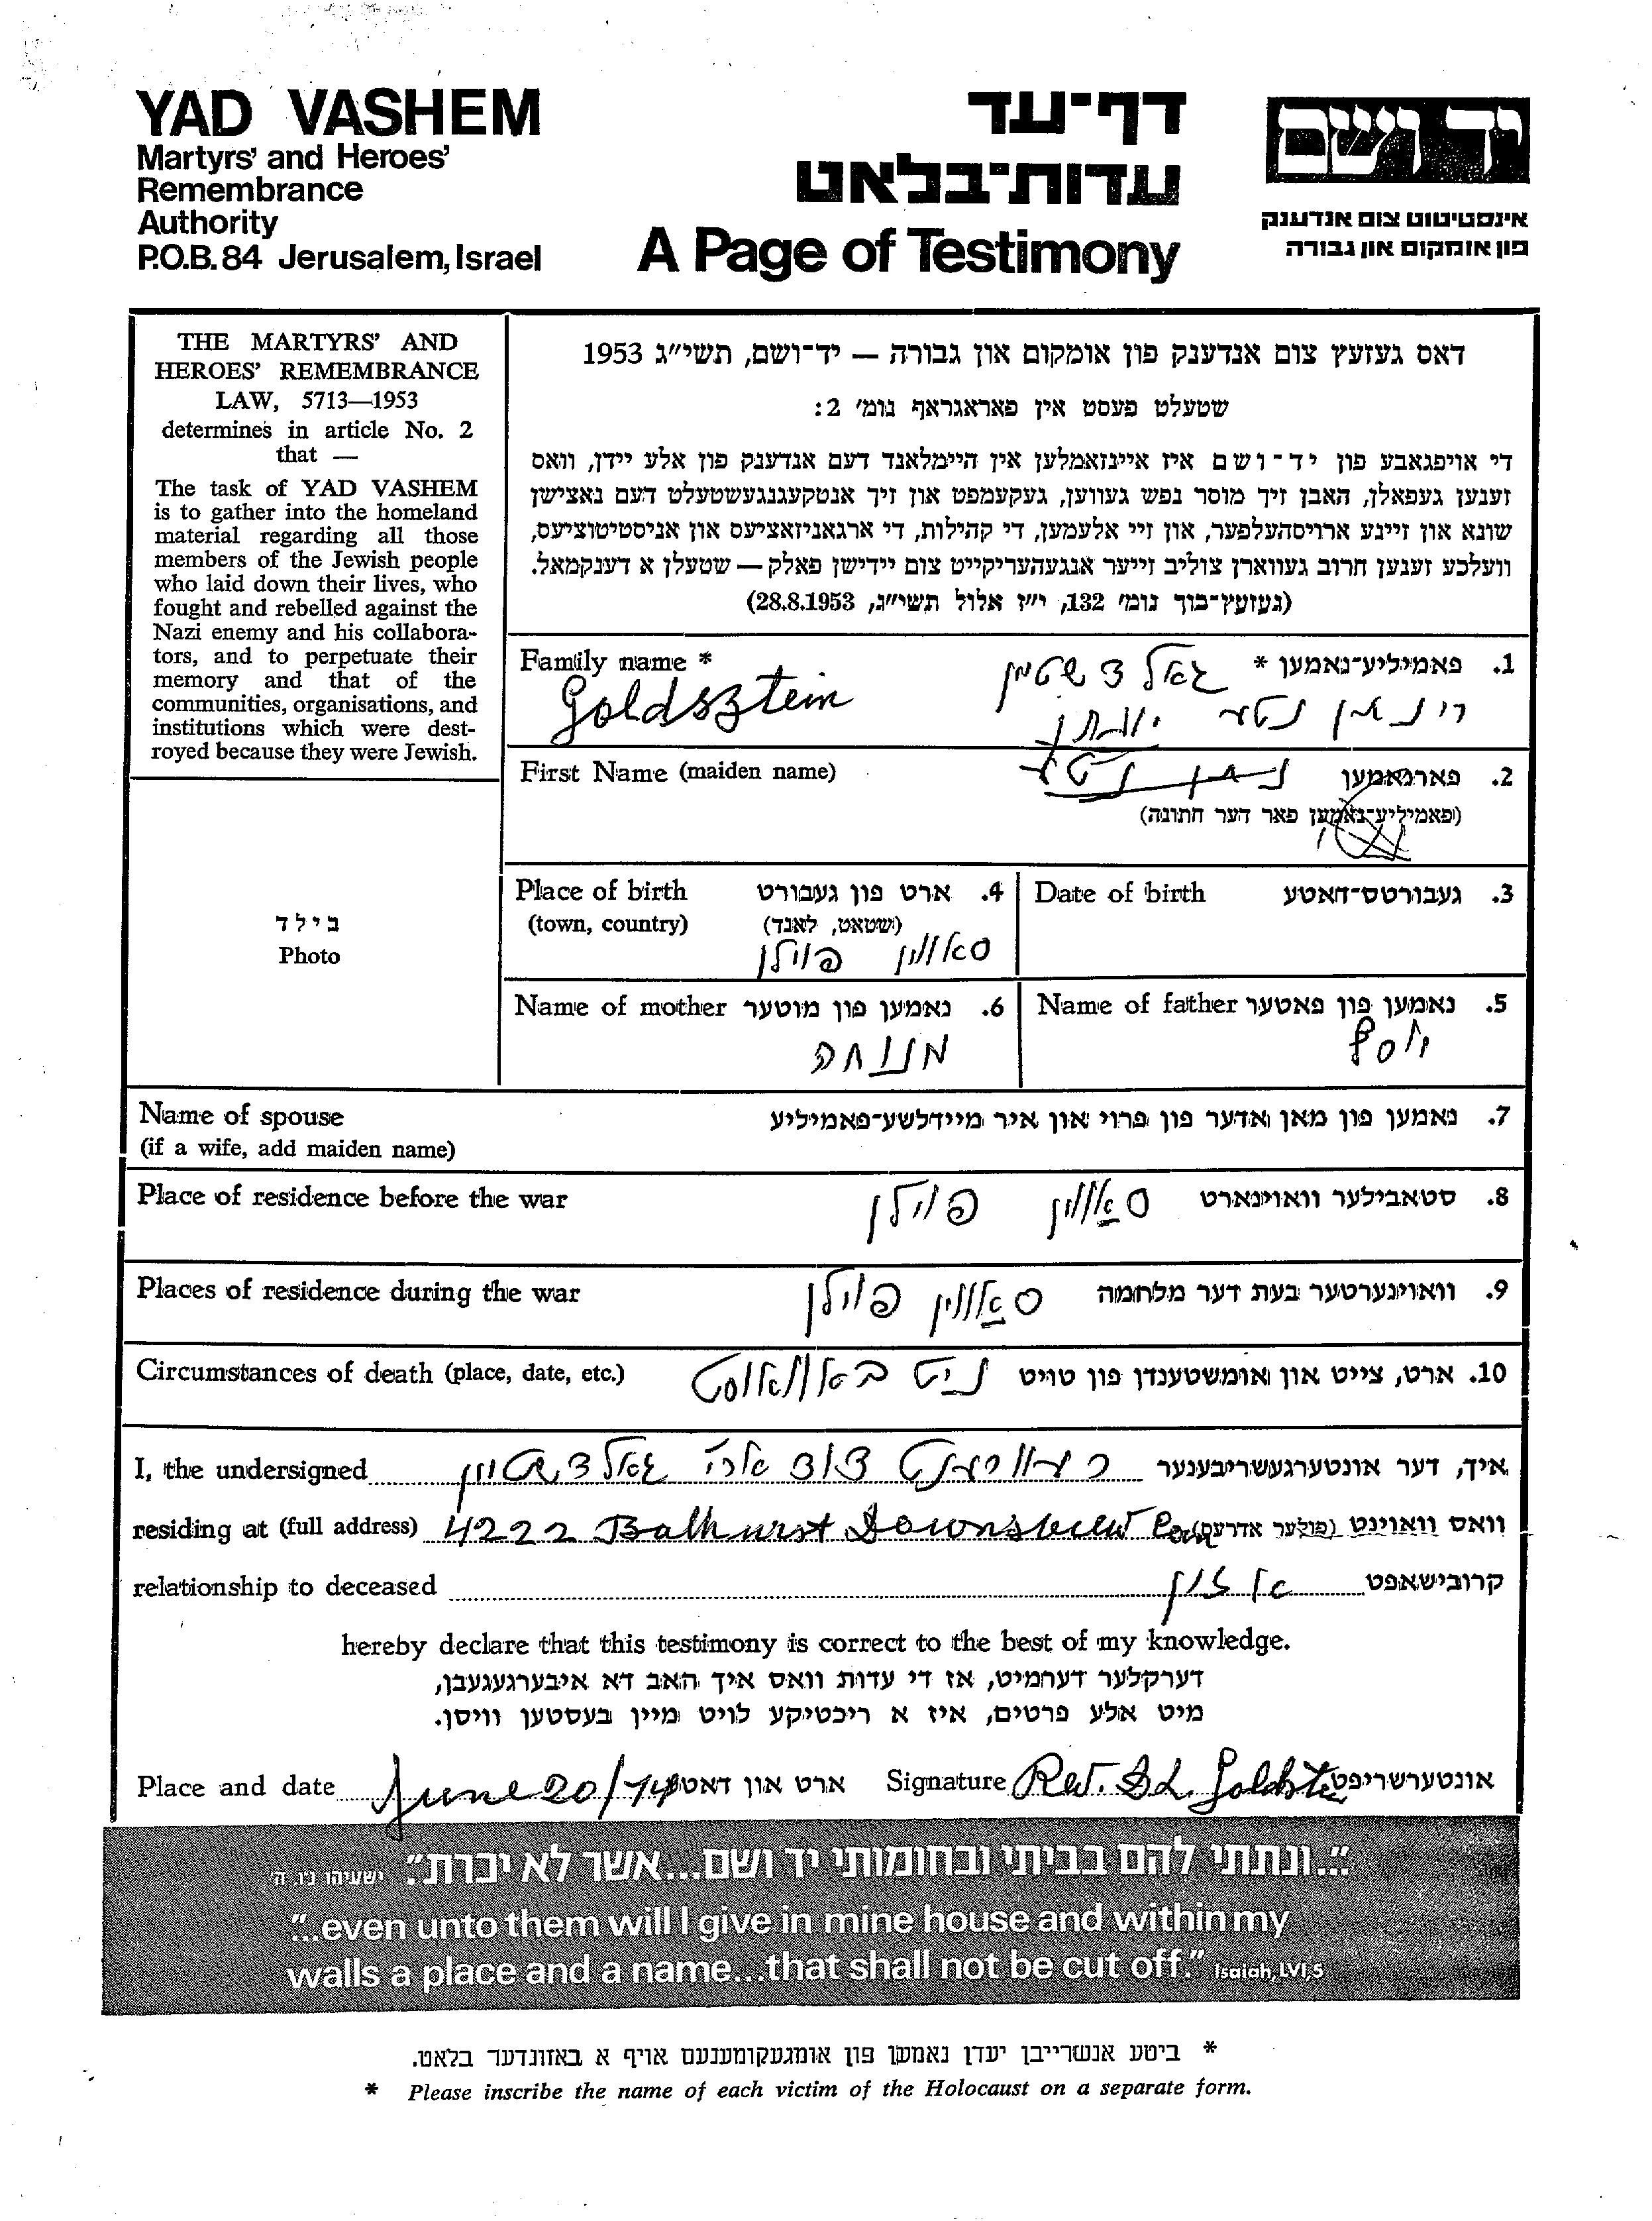 YAD VASHEM
Martyrs' and Heroes'
Remembrance
Authority
P.O.B. 84 Jerusalem, Israel
דף־עד
עדות־בלאט
A Page of Testimony
יד ושם
אינסטיטוט צום אנדענק
פון אומקום און גבורה
THE MARTYRS' AND
HEROES' REMEMBRANCE
LAW, 5713—1953
determines in article No. 2
that —
The task of YAD VASHEM
is to gather into the homeland
material regarding all those
members of the Jewish people
who laid down their lives, who
fought and rebelled against the
Nazi enemy and his collabora-
tors, and to perpetuate their
memory and that of the
communities, organisations, and
institutions which were dest-
royed because they were Jewish.
בילד
Photo
דאס געזעץ צום אנדענק פון אומקום און גבורה — יד־ושם, תשי״ג 1953
שטעלט פעסט אין פאראגראף נומ׳ 2:
די אויפגאבע פון יד־ושם איז איינזאמלען אין היימלאנד דעם אנדענק פון אלע יידן, וואס
זענען געפאלן, האבן זיך מוסר נפש געווען, געקעמפט און זיך אנטקעגנגעשטעלט דעם נאצישן
שונא און זיינע ארויסהעלפער, און זיי אלעמען, די קהילות, די ארגאניזאציעס און אניסטיטוציעס,
וועלכע זענען חרוב געווארן צוליב זייער אנגעהעריקייט צום יידישן פאלק — שטעלן א דענקמאל.
(געזעץ־בוך נומ׳ 132, י״ז אלול תשי״ג, 28.8.1953)
Family name * 1. פאמיליע־נאמען * גאלדשטיין
Goldsztein
First Name (maiden name) 2. פארנאמען
(פאמיליע־נאמען פאר דער חתונה)
Date of birth 3. געבורטס־דאטע
Place of birth 4. ארט פון געבורט
(town, country) (שטאט, לאנד)
פוילן
Name of father 5. נאמען פון פאטער
יוסף
Name of mother 6. נאמען פון מוטער
מנוחה
Name of spouse 7. נאמען פון מאן אדער פון פרוי און איר מיידלשע־פאמיליע
(if a wife, add maiden name)
Place of residence before the war 8. סטאבילער וואוינארט פוילן
Places of residence during the war 9. וואוינערטער בעת דער מלחמה פוילן
Circumstances of death (place, date, etc.) 10. ארט, צייט און אומשטענדן פון טויט ניט באוואוסט
I, the undersigned איך, דער אונטערגעשריבענער רעווערענט דוד ארי׳ גאלדשטיין
residing at (full address) 4222 Bathurst Downsview וואס וואוינט (פולער אדרעס)
relationship to deceased קרובישאפט
hereby declare that this testimony is correct to the best of my knowledge.
דערקלער דערמיט, אז די עדות וואס איך האב דא איבערגעגעבן,
מיט אלע פרטים, איז א ריכטיקע לויט מיין בעסטען וויסן.
Place and date June 20/74 ארט און דאטע Signature Rev. D. L. אונטערשריפט
"...ונתתי להם בביתי ובחומותי יד ושם...אשר לא יכרת." ישעיהו נ״ו, ה׳
"...even unto them will I give in mine house and within my
walls a place and a name...that shall not be cut off." Isaiah, LVI,5
* ביטע אנשרייבן יעדן נאמען פון אומגעקומענעם אויף א באזונדער בלאט.
* Please inscribe the name of each victim of the Holocaust on a separate form.